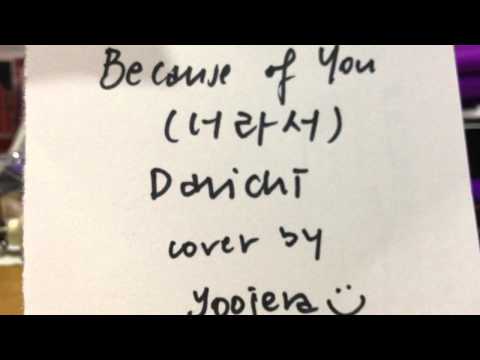 Because of You
(너라서)
Davichi
cover by
yoojera